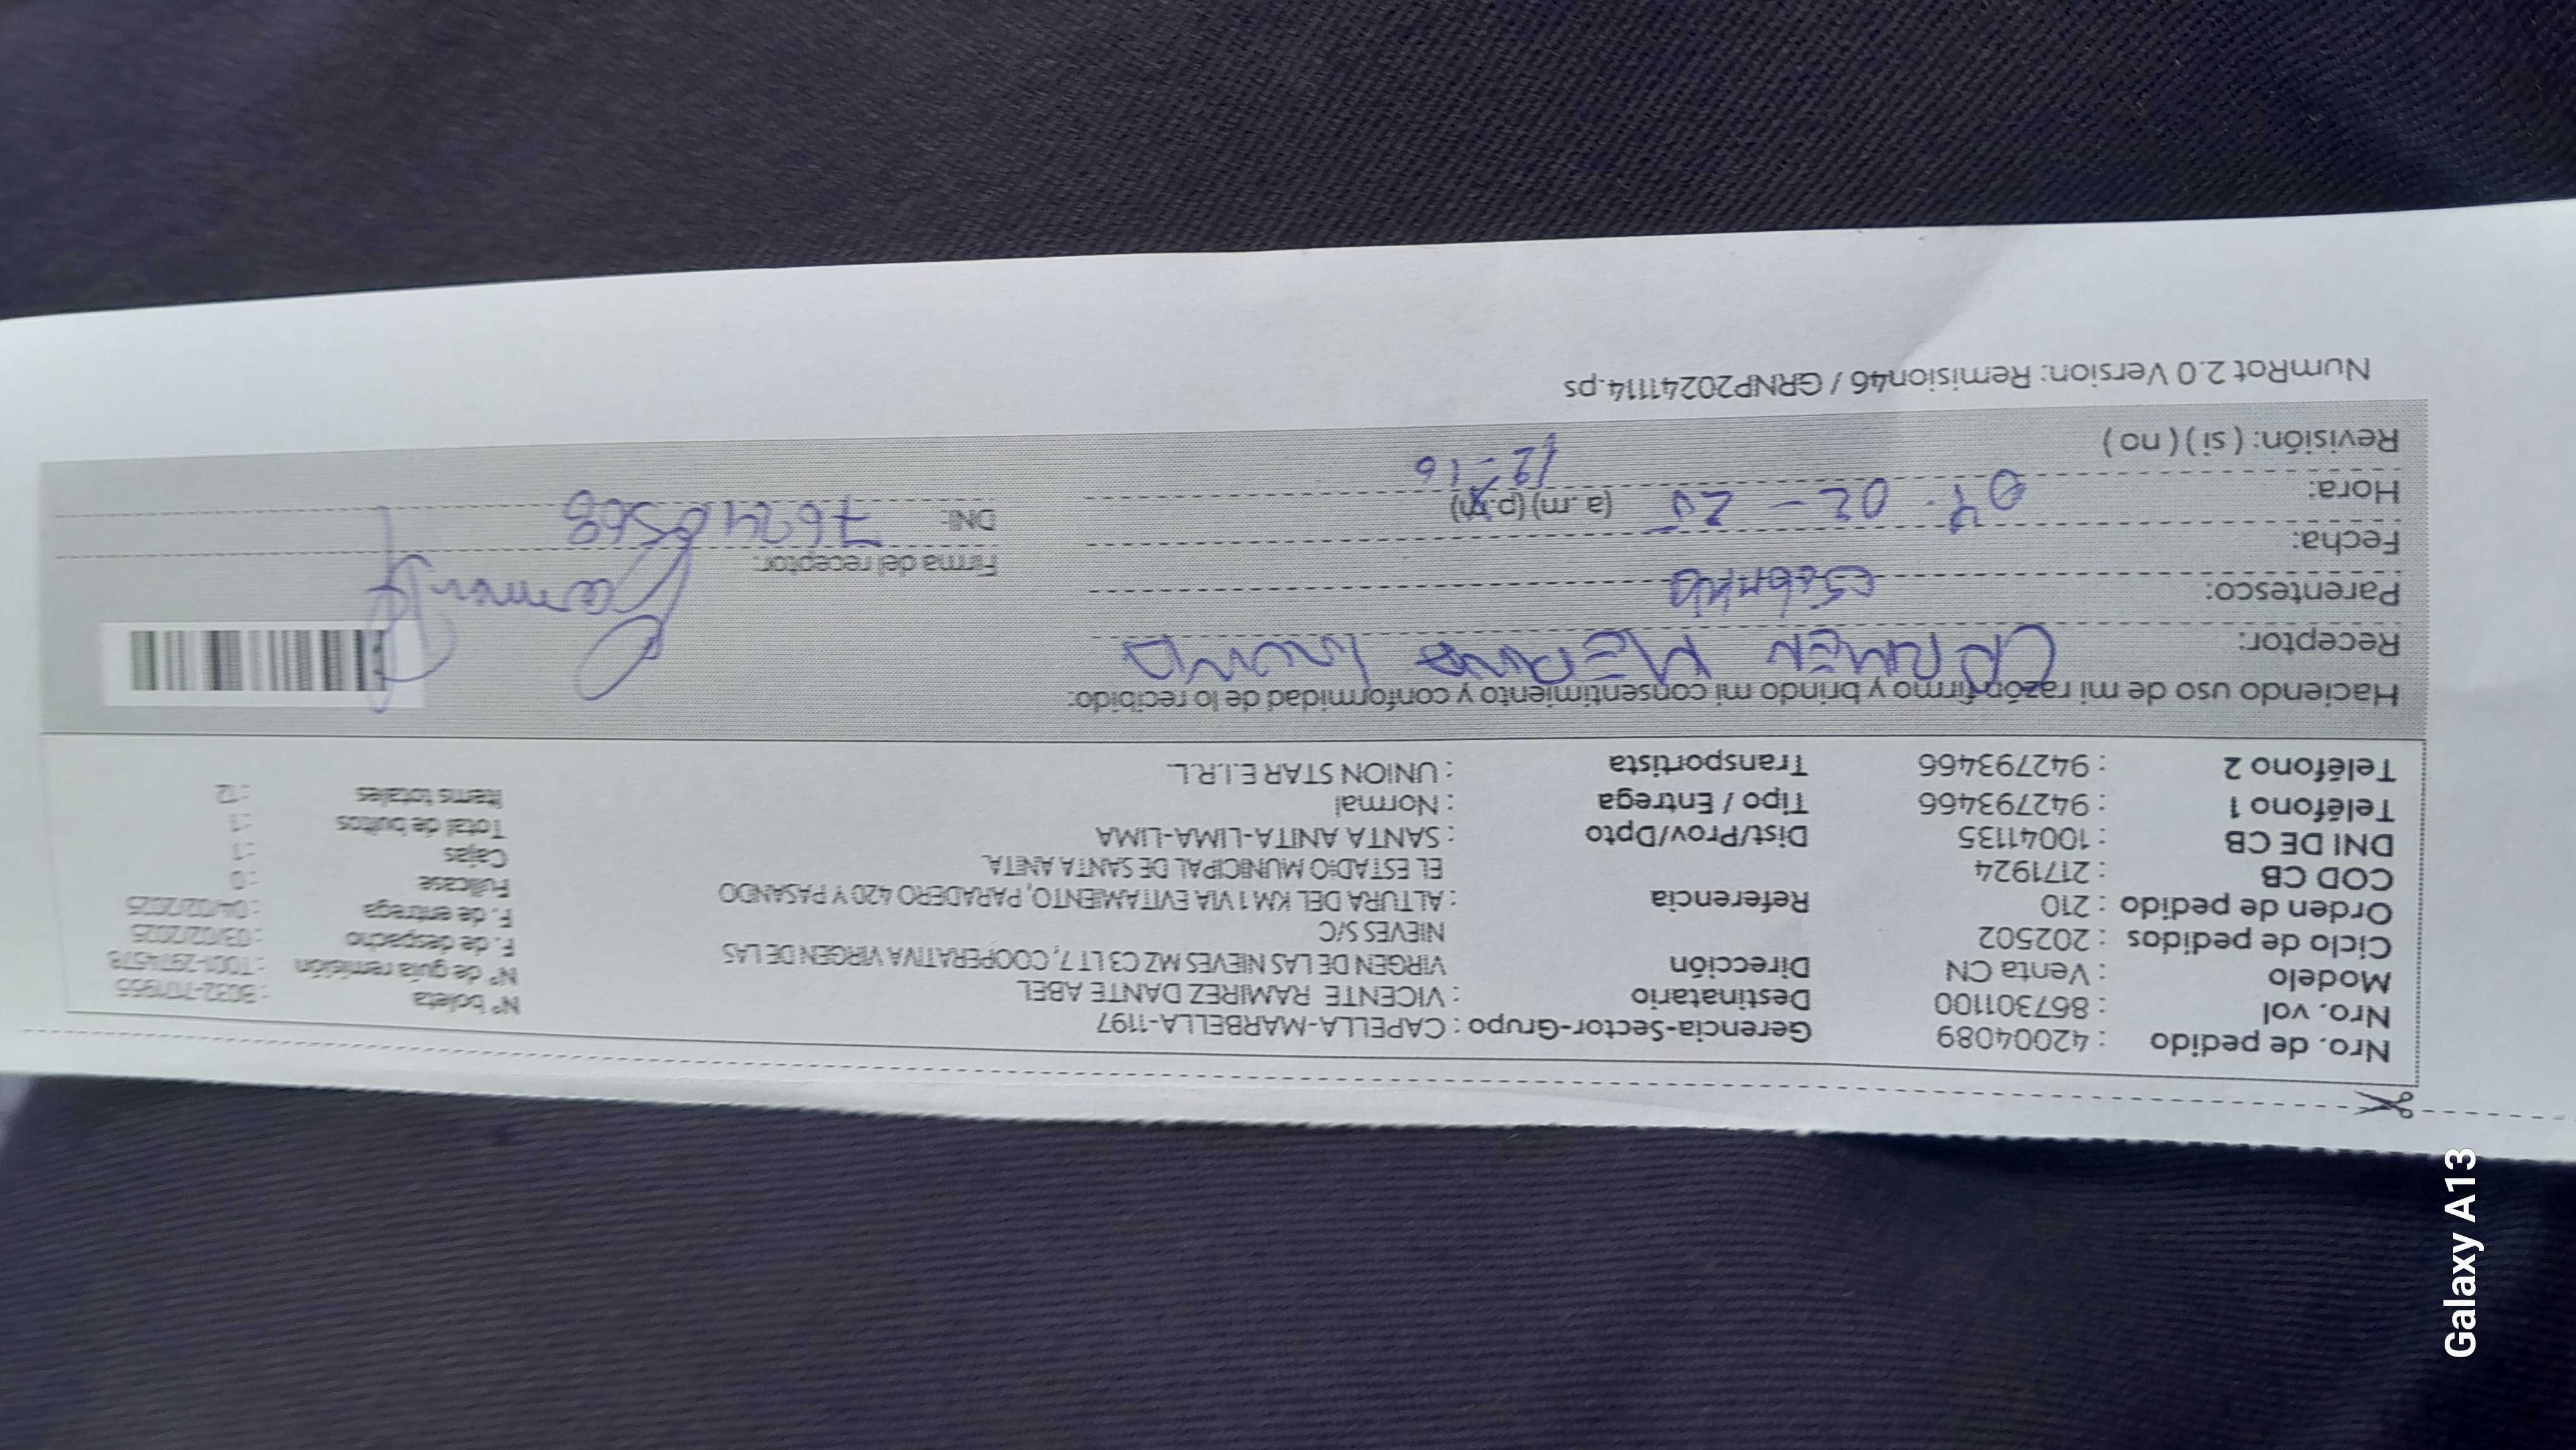 Nro. de pedido : 42004089 Gerencia-Sector-Grupo : CAPELLA-MARBELLA-1197 N° boleta : B032-7171955
Nro. vol : 867301100 Destinatario : VICENTE RAMIREZ DANTE ABEL N° de guía remisión : T001-2974578
Modelo : Venta CN Dirección VIRGEN DE LAS NIEVES MZ C3 LT 7, COOPERATIVA VIRGEN DE LAS F. de despacho : 03/02/2025
Ciclo de pedidos : 202502 NIEVES S/C F. de entrega : 04/02/2025
Orden de pedido : 210 Referencia : ALTURA DEL KM 1 VIA EVITAMIENTO, PARADERO 420 Y PASANDO Fullcase : 0
COD CB : 2171924 EL ESTADIO MUNICIPAL DE SANTA ANITA Cajas : 1
DNI DE CB : 10041135 Dist/Prov/Dpto : SANTA ANITA-LIMA-LIMA Total de bultos : 1
Teléfono 1 : 942793466 Tipo / Entrega : Normal Items totales : 12
Teléfono 2 : 942793466 Transportista : UNION STAR E.I.R.L.
Haciendo uso de mi razón firmo y brindo mi consentimiento y conformidad de lo recibido:
Receptor: CARMEN
Parentesco:
Fecha: Firma del receptor:
Hora: 04-02-25 (a.m) (p.m) 12-16 DNI:
Revisión: ( si ) ( no )
NumRot 2.0 Version: Remision46 / GRNP20241114.ps
Galaxy A13